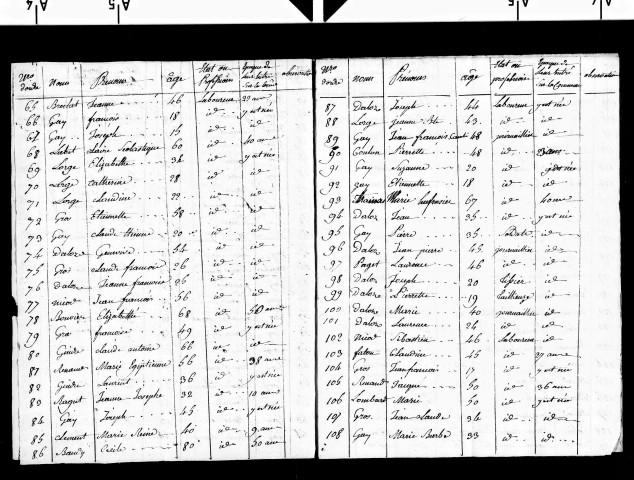 Nro d'ordre noms Prénoms âge Etat ou Profession Epoque de leur entrée observation
65 Jeanne 46 laboureur 39 ans
66 Gay françois 18 id y est née
67 Gay Joseph 15 id id
68 Labet claire Scolastique 60 id 40 ans
69 Lorge Elizabette 34 id y est née
70 Lorge catherine 28 id id
71 Lorge claudine 22 id id
72 Gros Etiennette 58 id id
73 Gay claude 20 id id
74 Daloz Genevive 54 id id
75 Gros claude françois 26 id id
76 Daloz Jeanne françoise 25 id id
77 nicod Jean françois 56 id id
78 Bouvier Elizabette 68 id 50 ans
79 Gros françoise 49 id y est née
80 Guide claude antoine 66 id id
81 Renaud Marie 66 id 38 ans
82 Guide laurent 36 id y est née
83 Ragut Jeanne Josephe 32 id 10 ans
84 Gay Joseph 45 id y est née
85 clement Marie Reine 40 id 9 ans
86 Baudy Cecile 80 id 50 ans
Nro d'ordre noms Prénoms âge Etat ou profession Epoque de leur entrée la Commune observation
87 Daloz Joseph 44 laboureur y est née
88 Lorge Jeanne 43 id id
89 Gay Jean françois 48 journaillier id
90 Coulon Pierrette 48 id 23 ans
91 Gay Suzanne 20 id y est née
92 gay Etiennette 18 id id
93 Marie 67 id 40 ans
94 Daloz Jean 35 id y est née
95 Gay Pierre 35 id
96 Daloz Jean pierre 45 journaillier id
97 Paget Laurence 46 id id
98 Daloz Joseph 20 id
99 Daloz Pierrette 19 tailleuse id
100 Daloz Marie 40 journaillier id
101 Daloz Laurence 24 id id
102 nicod Sebastien 46 laboureur id
103 faton Claudine 45 id 27 ans
104 Gros Jean françois 17 id y est née
105 Renaud Jacque 50 id 36 ans
106 Lombart Marie 50 id y est née
107 Gros Jean Claude 34 id id
108 Gay Marie Barbe 33 id id